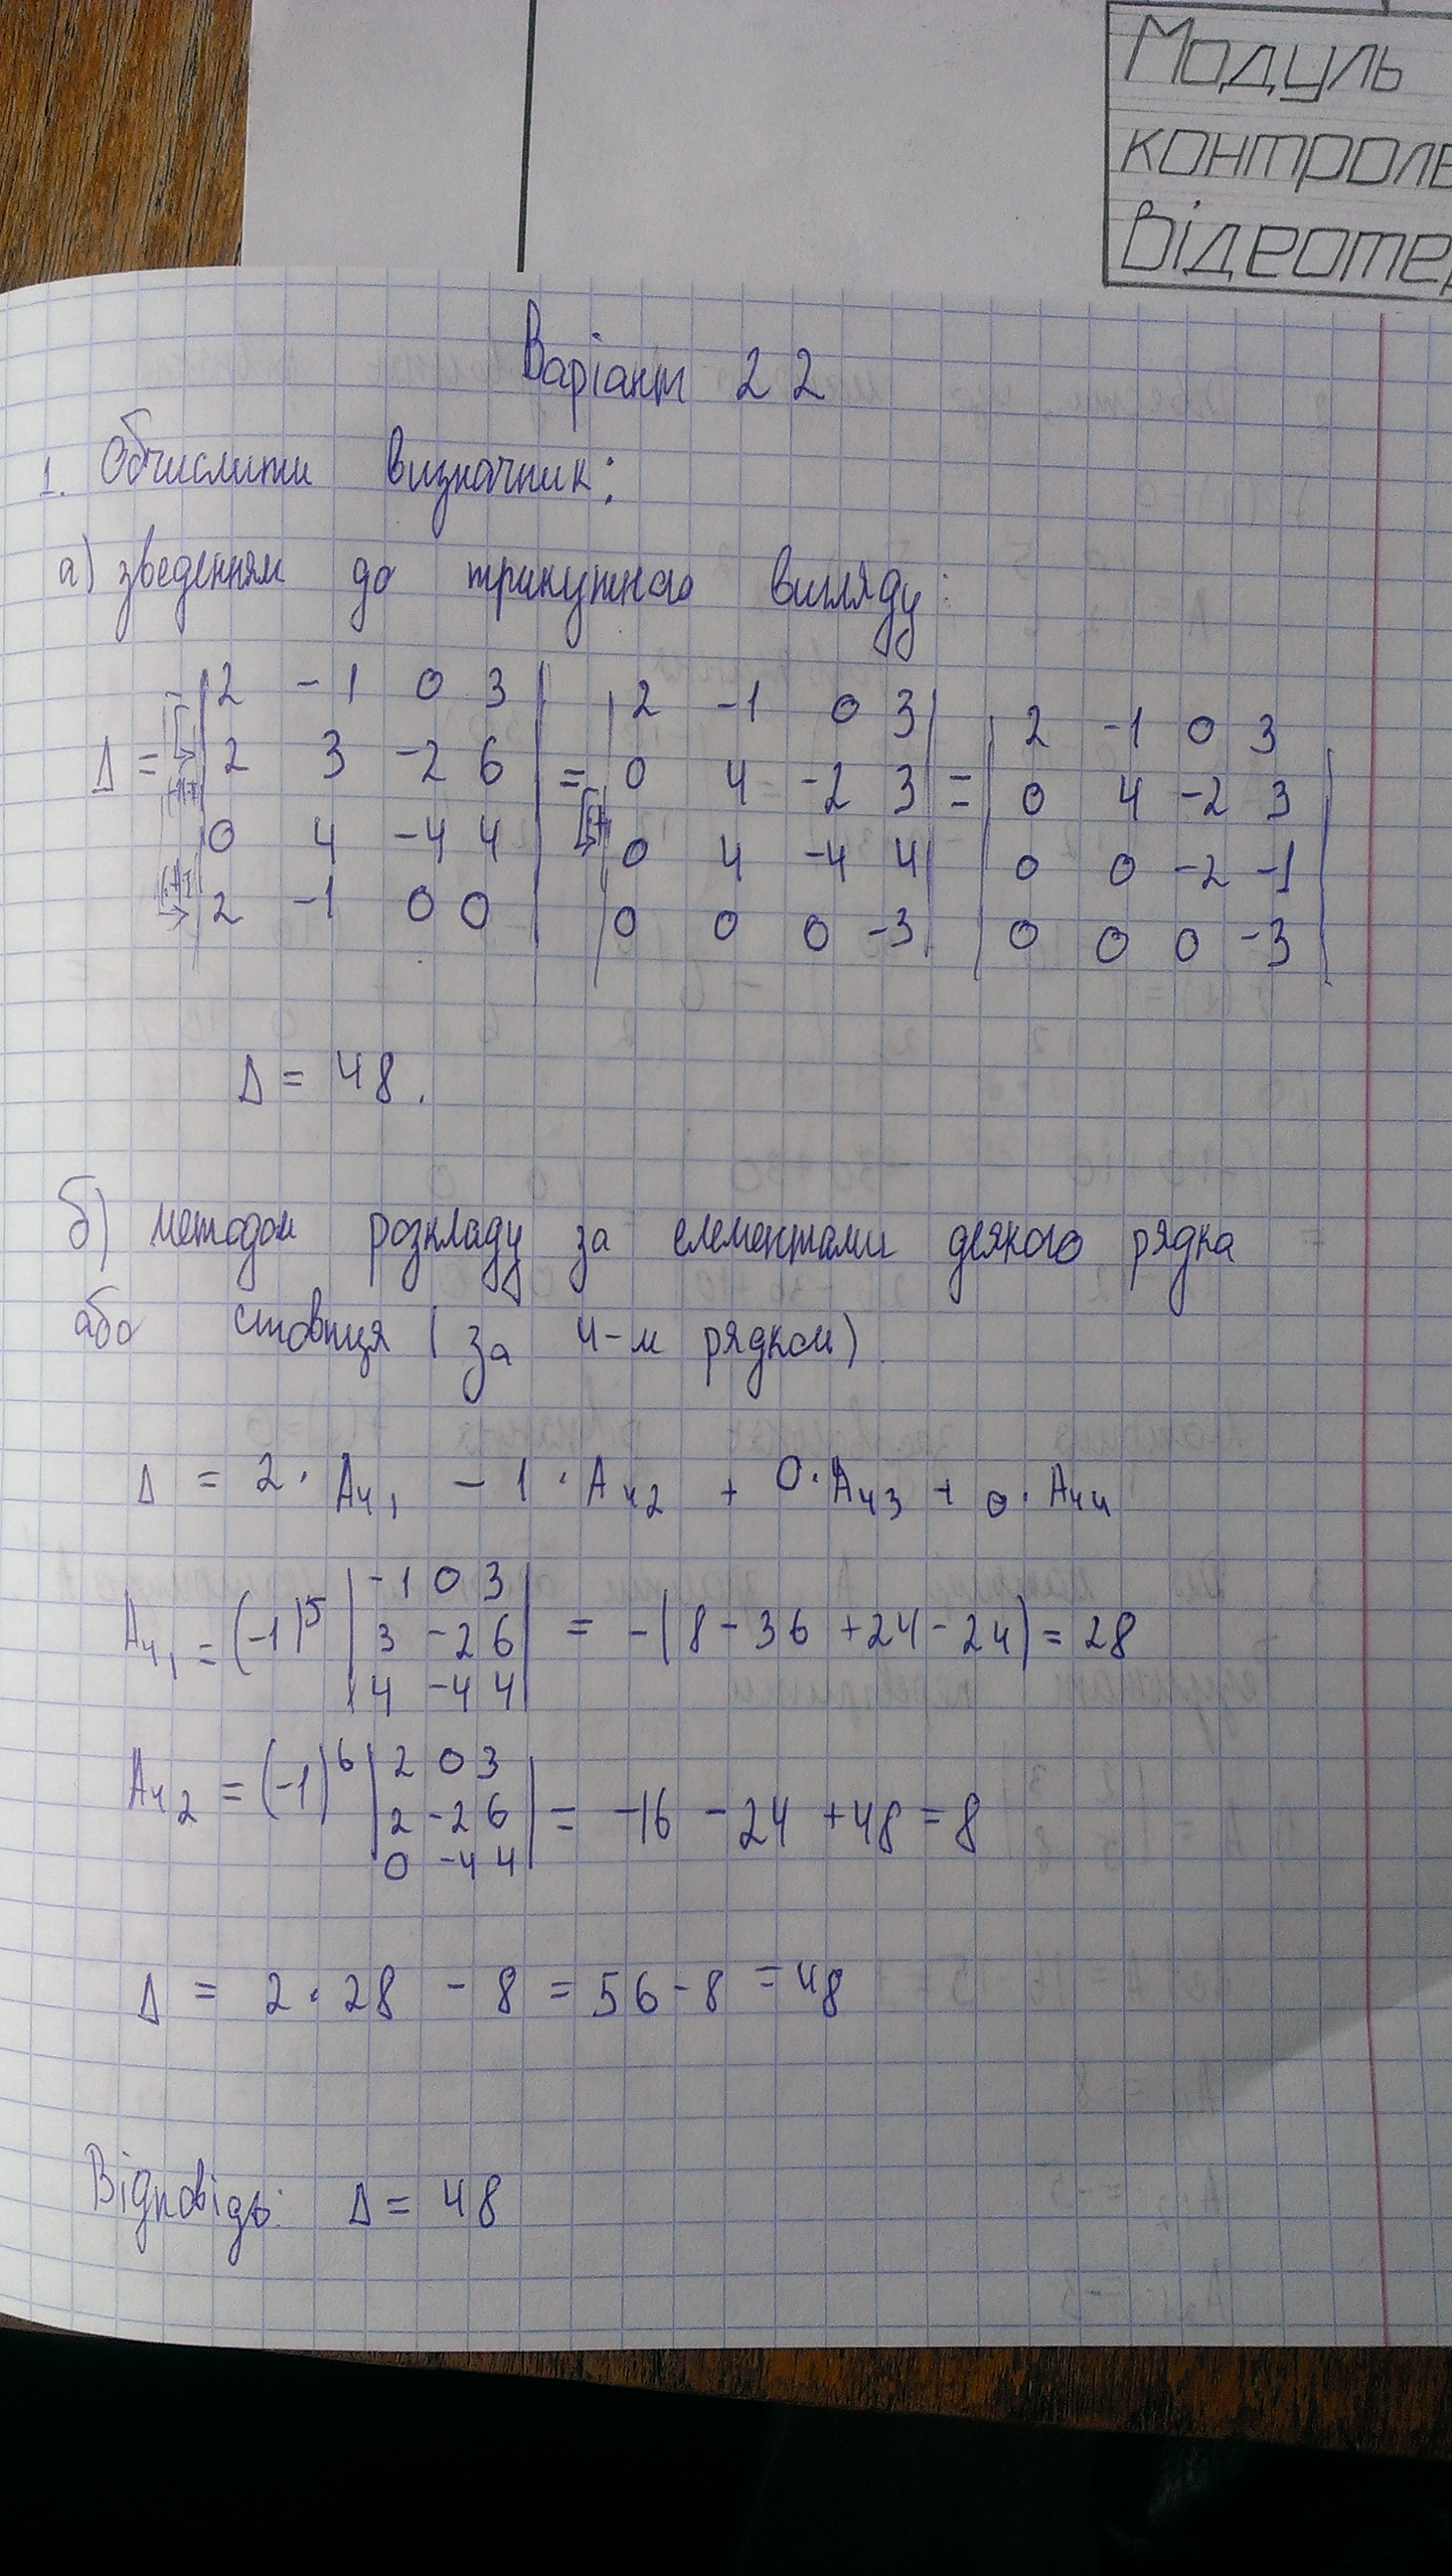 Модуль
контроле
відеоте
Варіант 22
1. Обчислити визначник:
а) зведенням до трикутного вигляду:
Δ = | 2 -1 0 3 | = | 2 -1 0 3 | = | 2 -1 0 3 |
| 2 3 -2 6 | | 0 4 -2 3 | | 0 4 -2 3 |
| 0 4 -4 4 | | 0 4 -4 4 | | 0 0 -2 -1 |
| 2 -1 0 0 | | 0 0 0 -3 | | 0 0 0 -3 |
Δ = 48.
б) методом розкладу за елементами деякого рядка
або стовпця (за 4-м рядком)
Δ = 2 · A41 - 1 · A42 + 0 · A43 + 0 · A44
A41 = (-1)^5 | -1 0 3 | = -(8 - 36 + 24 - 24) = 28
| 3 -2 6 |
| 4 -4 4 |
A42 = (-1)^6 | 2 0 3 | = -16 - 24 + 48 = 8
| 2 -2 6 |
| 0 -4 4 |
Δ = 2 · 28 - 8 = 56 - 8 = 48
Відповідь: Δ = 48